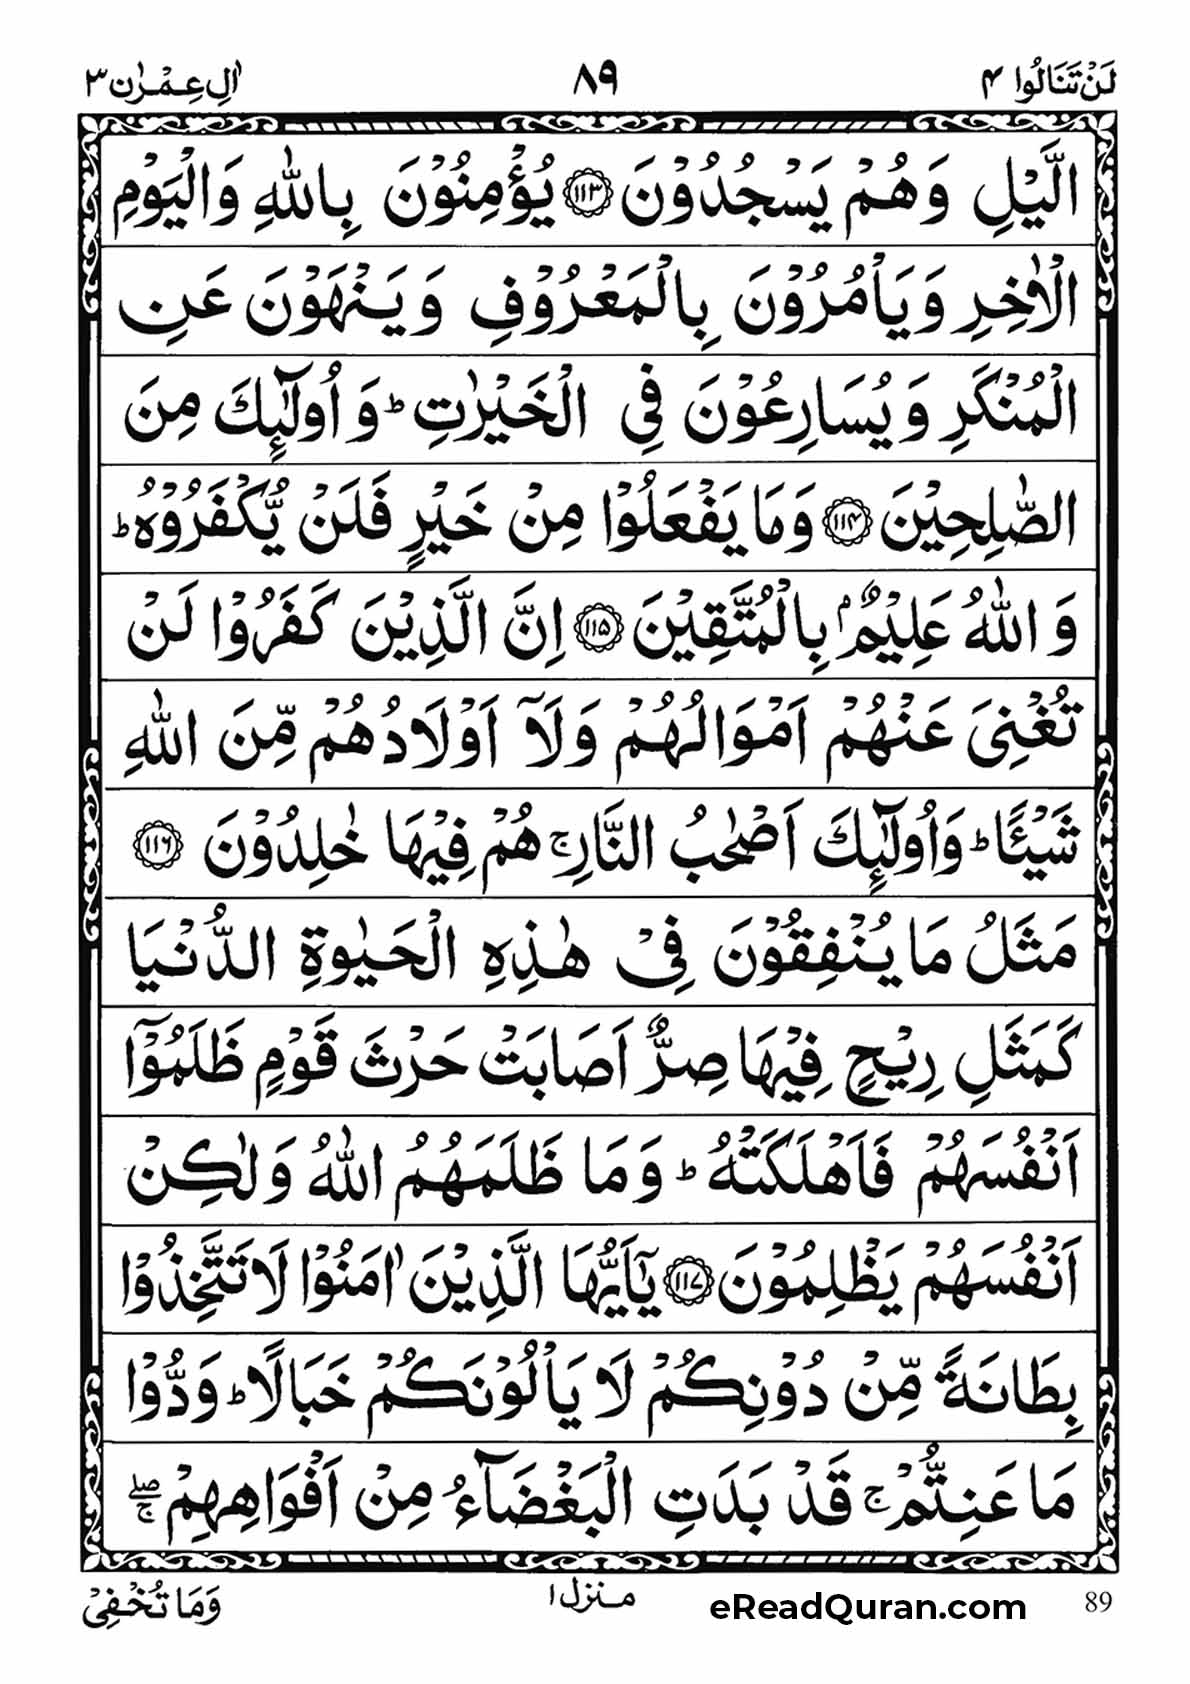 لَنْ تَنَالُوا ۴ ۸۹ اٰلِ عِمْرٰن ۳
الَّيْلِ وَهُمْ يَسْجُدُوْنَ ۝۱۱۳ يُؤْمِنُوْنَ بِاللّٰهِ وَالْيَوْمِ
الْاٰخِرِ وَيَاْمُرُوْنَ بِالْمَعْرُوْفِ وَيَنْهَوْنَ عَنِ
الْمُنْكَرِ وَيُسَارِعُوْنَ فِي الْخَيْرٰتِ ؕ وَاُولٰٓئِكَ مِنَ
الصّٰلِحِيْنَ ۝۱۱۴ وَمَا يَفْعَلُوْا مِنْ خَيْرٍ فَلَنْ يُّكْفَرُوْهُ ؕ
وَاللّٰهُ عَلِيْمٌۢ بِالْمُتَّقِيْنَ ۝۱۱۵ اِنَّ الَّذِيْنَ كَفَرُوْا لَنْ
تُغْنِيَ عَنْهُمْ اَمْوَالُهُمْ وَلَآ اَوْلَادُهُمْ مِّنَ اللّٰهِ
شَيْئًا ؕ وَاُولٰٓئِكَ اَصْحٰبُ النَّارِ ۚ هُمْ فِيْهَا خٰلِدُوْنَ ۝۱۱۶
مَثَلُ مَا يُنْفِقُوْنَ فِيْ هٰذِهِ الْحَيٰوةِ الدُّنْيَا
كَمَثَلِ رِيْحٍ فِيْهَا صِرٌّ اَصَابَتْ حَرْثَ قَوْمٍ ظَلَمُوْٓا
اَنْفُسَهُمْ فَاَهْلَكَتْهُ ؕ وَمَا ظَلَمَهُمُ اللّٰهُ وَلٰكِنْ
اَنْفُسَهُمْ يَظْلِمُوْنَ ۝۱۱۷ يٰٓاَيُّهَا الَّذِيْنَ اٰمَنُوْا لَا تَتَّخِذُوْا
بِطَانَةً مِّنْ دُوْنِكُمْ لَا يَاْلُوْنَكُمْ خَبَالًا ؕ وَدُّوْا
مَا عَنِتُّمْ ۚ قَدْ بَدَتِ الْبَغْضَآءُ مِنْ اَفْوَاهِهِمْ ۖۚ
89 eReadQuran.com منزل ۱ وَمَا تُخْفِيْ